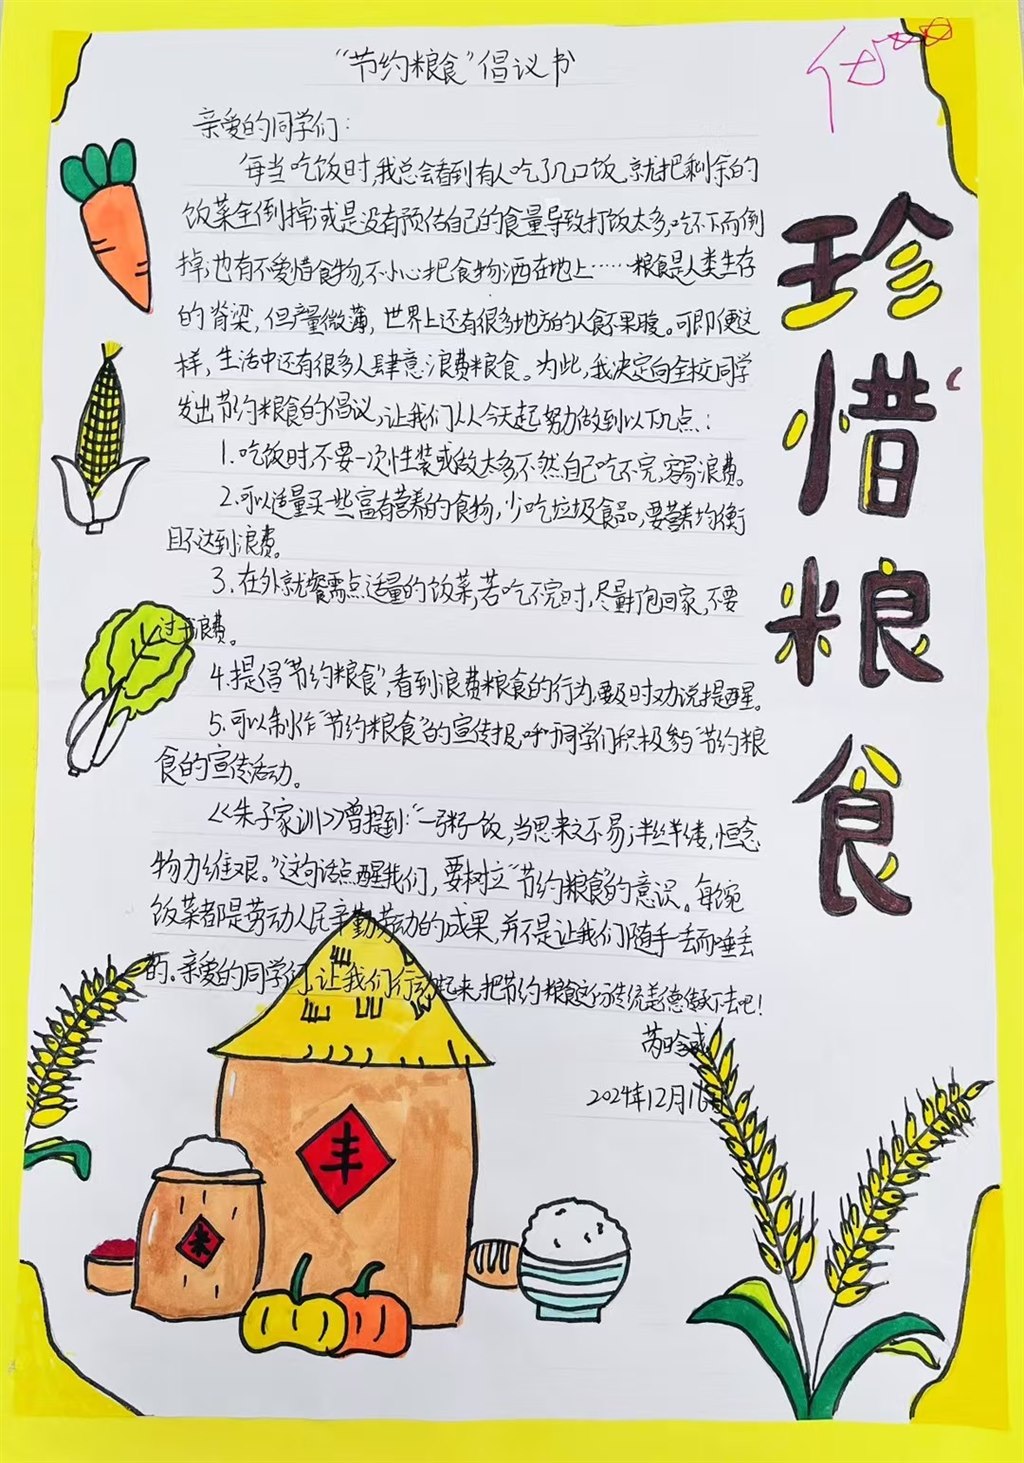 “节约粮食”倡议书
亲爱的同学们：
每当吃饭时，我总会看到有人吃了几口饭，就把剩余的
饭菜全倒掉；或是没有预估自己的食量导致打饭太多，吃不下而倒
掉；也有不爱惜食物，不小心把食物洒在地上……粮食是人类生存
的脊梁，但产量微薄，世界上还有很多地方的人食不果腹。可即便这
样，生活中还有很多人肆意浪费粮食。为此，我决定向全校同学
发出节约粮食的倡议，让我们从今天起努力做到以下几点：
1.吃饭时，不要一次性装或放太多，不然自己吃不完，容易浪费。
2.可以适量买一些富有营养的食物，少吃垃圾食品，要营养均衡
且不达到浪费。
3.在外就餐需点适量的饭菜，若吃不完时，尽量打包回家，不要
浪费。
4.提倡“节约粮食”，看到浪费粮食的行为，要及时劝说提醒。
5.可以制作“节约粮食”的宣传报，呼吁同学们积极参与“节约粮
食的宣传活动。
《朱子家训》曾提到：“一粥一饭，当思来之不易；半丝半缕，恒念
物力维艰。”这句话点醒我们，要树立“节约粮食”的意识。每碗
饭菜都是劳动人民辛勤劳动的成果，并不是让我们随手一丢而唾弃
的。亲爱的同学们，让我们行动起来，把节约粮食这份传统美德做下去吧！
2024年12月1日
珍惜粮食
优
丰
米